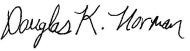 Douglas K. Norman